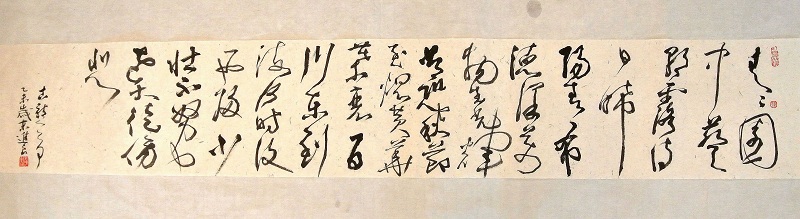 青々園
中葵
朝露待
日晞
陽春布
德澤萬
物生光輝
常恐秋節
至焜黃華
葉衰百
川東到
海何時復
西歸少
壯不努力
老大徒傷
悲
乙未歲